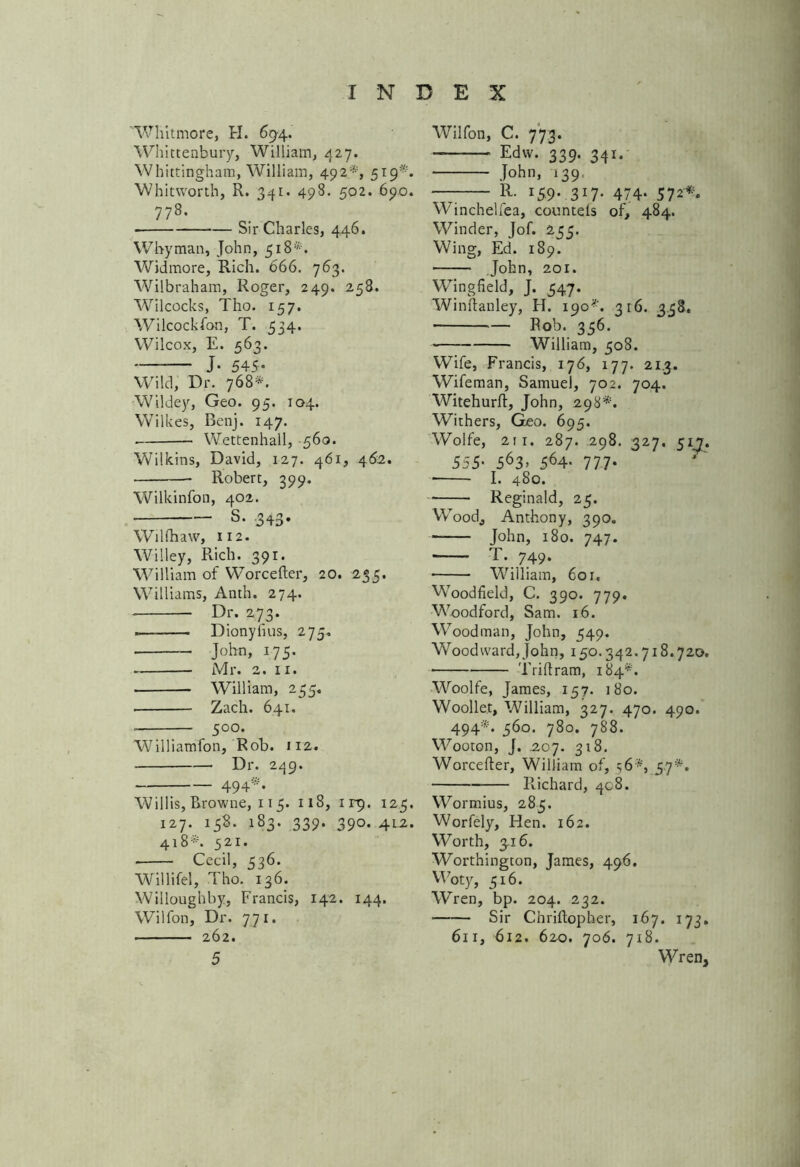 INDEX
Whitmore, H. 694.
Whittenbury, William, 427.
Whittingham, William, 492*, 519*.
Whitworth, R. 341. 498. 502. 690.
778.
—— Sir Charles, 446.
Whyman, John, 518*.
Widmore, Rich. 666. 763.
Wilbraham, Roger, 249. 258.
Wilcocks, Tho. 157.
Wilcockſon, T. 534.
Wilcox, E. 563.
—— J. 545.
Wild, Dr. 768*.
Wildey, Geo. 95. 104.
Wilkes, Benj. 147.
—— Wettenhall, 560.
Wilkins, David, 127. 461, 462.
—— Robert, 399.
Wilkinſon, 402.
—— S. 343.
Wilſhaw, 112.
Willey, Rich. 391.
William of Worceſter, 20. 235.
Williams, Anth. 274.
—— Dr. 273.
—— Dionyſius, 275.
—— John, 175.
—— Mr. 2. 11.
—— William, 255.
—— Zach. 641.
—— 500.
Williamſon, Rob. 112.
—— Dr. 249.
—— 494*.
Willis, Browne, 115. 118, 119. 125.
127. 158. 183. 339. 390. 412.
418*. 521.
—— Cecil, 536.
Williſel, Tho. 136.
Willoughby, Francis, 142. 144.
Wilſon, Dr. 771.
—— 262.
5
Wilſon, C. 773.
—— Edw. 339. 341.
—— John, 139.
—— R. 159. 317. 474. 572*.
Winchelſea, counteſs of, 484.
Winder, Joſ. 255.
Wing, Ed. 189.
—— John, 201.
Wingfield, J. 547.
Winſtanley, H. 190*. 316. 358.
—— Rob. 356.
—— William, 508.
Wiſe, Francis, 176, 177. 213.
Wiſeman, Samuel, 702. 704.
Witehurſt, John, 298*.
Withers, Geo. 695.
Wolfe, 211. 287. 298. 327. 517.
555. 563, 564. 777.
—— I. 480.
—— Reginald, 25.
Wood, Anthony, 390.
—— John, 180. 747.
—— T. 749.
—— William, 601.
Woodfield, C. 390. 779.
Woodford, Sam. 16.
Woodman, John, 549.
Woodward, John, 150. 342. 718. 720.
—— Triſtram, 184*.
Woolfe, James, 157. 180.
Woollet, William, 327. 470. 490.
494*. 560. 780. 788.
Wooton, J. 207. 318.
Worceſter, William of, 56*, 57*.
—— Richard, 408.
Wormius, 285.
Worſely, Hen. 162.
Worth, 316.
Worthington, James, 496.
Woty, 516.
Wren, bp. 204. 232.
—— Sir Chriſtopher, 167. 173.
611, 612. 620. 706. 718.
Wren,